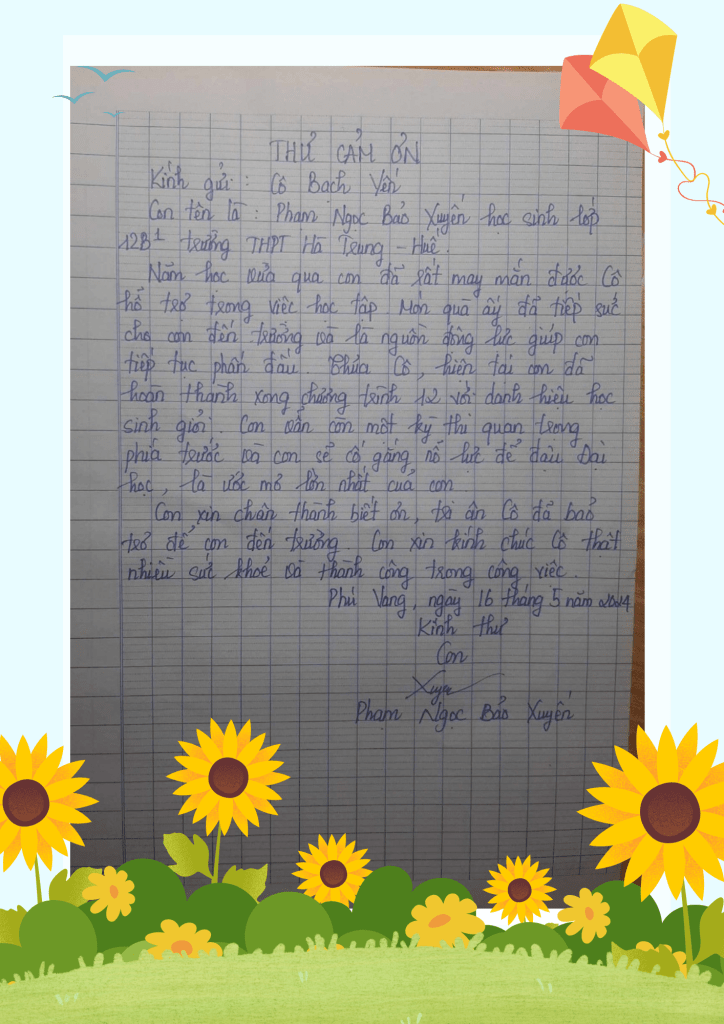 THƯ CẢM ƠN
Kính gửi : Cô Bạch Yến
Con tên là : Phạm Ngọc Bảo Xuyến học sinh lớp
12B1 trường THPT Hà Trung - Huế.
Năm học vừa qua con đã rất may mắn được Cô
hỗ trợ trong việc học tập. Món quà ấy đã tiếp sức
cho con đến trường và là nguồn động lực giúp con
tiếp tục phấn đấu. Thưa Cô, hiện tại con đã
hoàn thành xong chương trình 12 với danh hiệu học
sinh giỏi. Con vẫn còn một kỳ thi quan trọng
phía trước và con sẽ cố gắng nỗ lực để đậu Đại
học, là ước mơ lớn nhất của con
Con xin chân thành biết ơn, tri ân Cô đã bảo
trợ để con đến trường. Con xin kính chúc Cô thật
nhiều sức khoẻ và thành công trong công việc.
Phú Vang, ngày 16 tháng 5 năm 2024
Kính thư
Con
Xuyến
Phạm Ngọc Bảo Xuyến